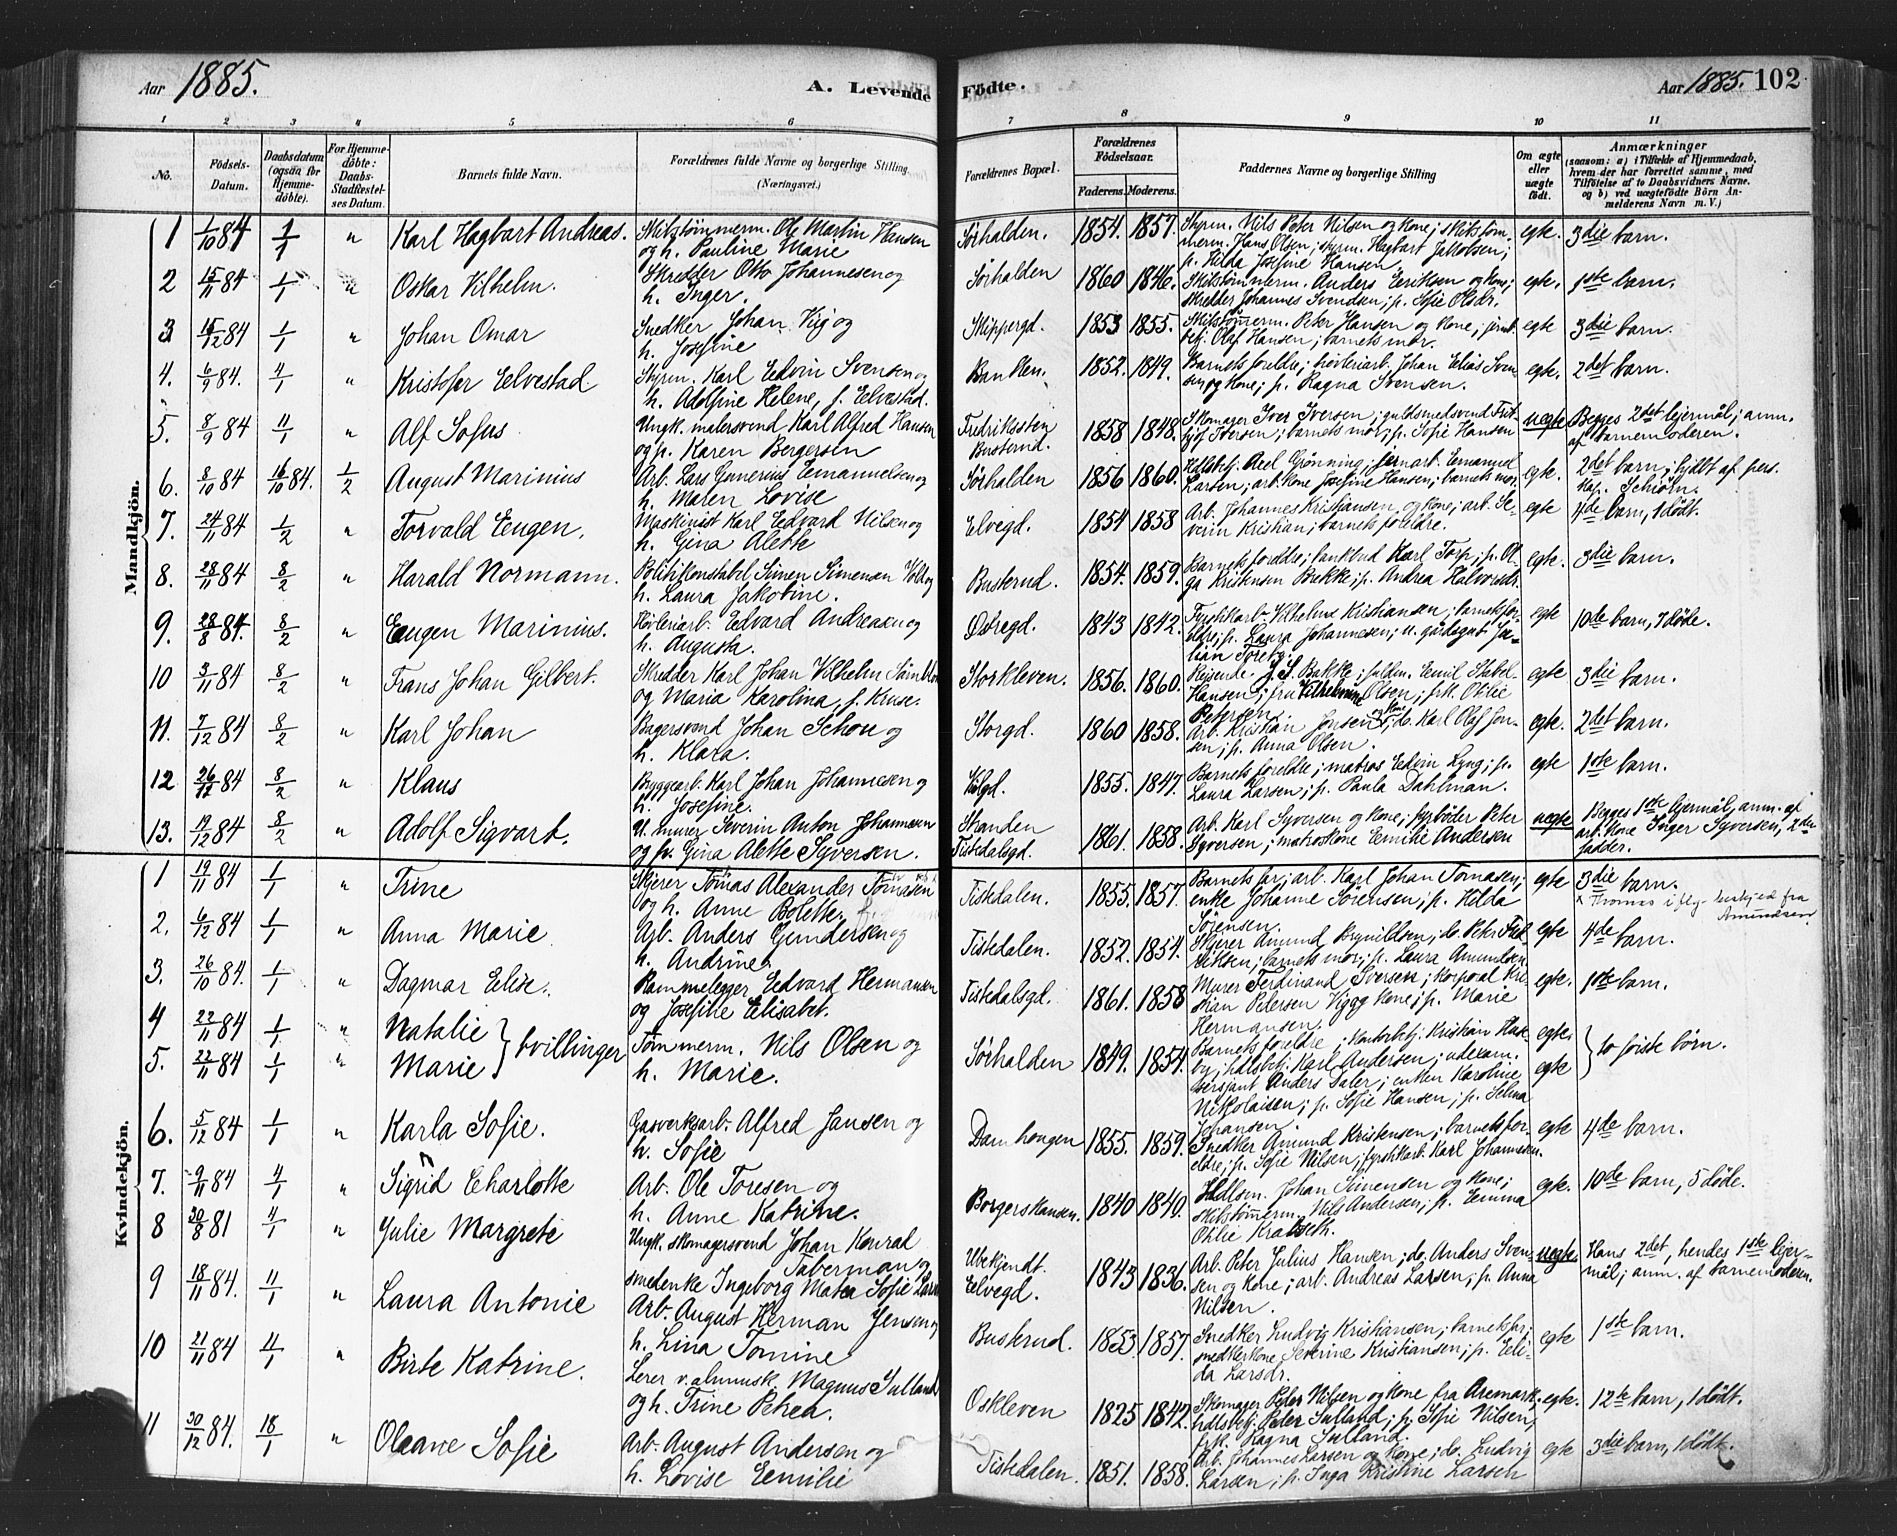 Aar 1885. A. Levende Födte. Aar 1885. 102
1 2 3 4 5 6 7 8 9 10 11
No. Födsels-Datum. Daabsdatum (ogsaa for Hjemmedöbte). For Hjemmedöbte: Daabs-Stadfæstelses Datum. Barnets fulde Navn. Forældrenes fulde Navne og borgerlige Stilling. (Næringsvei.)
Forældrenes Bopæl. Forældrenes Födselsaar. Faderens. Moderens. Faddernes Navne og borgerlige Stilling Om ægte eller uægte födt. Anmærkninger (saasom: a) i Tilfælde af Hjemmedaab, hvem der har forrettet samme, med Tilföielse af to Daabsvidners Navne. og b) ved uægtefödte Börn Anmelderens Navn m. V.)
Mandkjön.
1 1/10 84 1/1 " Karl Hagbart Andreas. Skibstømmerm. Ole Martin Hansen og h. Pauline Marie Sørhalden. 1854. 1857. Styrm. Nils Peter Nilsen og kone; skibstømmerm. Hans Olsen; styrm. Hagbart Jakobsen; p. Hilda Josefine Hansen egte. 3die barn.
2 15/11 84 1/1 " Oskar Vilhelm. Skredder Otto Johannesen og h. Inger. Sørhalden 1860 1846. Skibstømmerm. Anders Eriksen og kone; skredder Johannes Svendsen; p. Sofie Olsdr. egte. 1ste barn.
3 15/12 84 1/1 " Johan Omar Snedker Johan Vig og h. Josefine Skippergd. 1853 1855. Skibstømrerm. Peter Hansen og kone; Olaf Hansen; barnets mor. egte 3die barn.
4. 6/9 84. 4/1 " Kristofer Elvestad Styrm. Karl Edvin Svensen og h. Adolfine Helene, f. Elvestad. Banken. 1852. 1849. Barnets foreldre; høvleriarb. Johan Elias Svensen og kone; p. Ragna Svensen. egte. 2det barn.
5. 8/9 84 11/1 " Alf Sofus Ungk. malersvend Karl Alfred Hansen og p. Karen Bergersen Fredriksten Buskerud. 1858 1848. Skomager Iver Iversen; guldsmedsvend Fritjof Iversen; barnets mor; p. Sofie Hansen uegte Begges 2det leiermål; anm. af barnemoderen.
6. 8/10 84 16/10 84. 1/2 August Marinius Arb. Lars Gunerius Emanuelsen og h. Maren Lovise Sørhalden 1856 1860. Hdlsbetj. Axel Grønning; Emanuel Larsen; arb.kone Josefine Hansen; barnets mor. egte. 2det barn; hjdbt af pers. kap. Schiørn.
7. 24/11 84 1/2 " Torvald Eugen. Maskinist Karl Edvard Nilsen og h. Gina Alette Elvegd. 1854 1858 Arb. Johannes Kristiansen og kone; arb. Severin Kristian; barnets foreldre. egte 4de barn, 1 dødt.
8. 28/11 84 8/2 " Harald Normann. Politikonstabel Simen Simensen Vold og h. Laura Jakobine. Buskerud. 1854. 1859. Barnets foreldre; Karl Torp; p. Olga Kristensen Bakke; p. Andrea Halvorsdr. egte. 3die barn.
9. 28/8 84. 8/2 " Eugen Marinius. Høvleriarb. Edvard Andreasen og h. Augusta. Østregd. 1843 1842. Fyrstikarb. Vilhelms Kristiansen; barnets foreldre; p. Laura Johannesen; u. gårdsgut Julian Torebg. egte 10de barn, 7 døde.
10 3/11 84 8/2 " Frans Johan Gilbert. Skredder Karl Johan Vilhelm og Maria Karolina, f. Kruse. Storkleven. 1856. 1860. Reisende J. S. Bakke; Emil Stabel-Hansen; fru Vilhelmine Olsen; frk. Otilie Petersen egte 3die barn.
11. 7/12 84 8/2 " Karl Johan Bagersvend Johan Schou og h. Klara. Storgd. 1860 1858. Arb. Kristian Jensen og kone; do. Karl Olaf Jensen; p. Anna Olsen. egte. 2det barn.
12 26/12 84 8/2 " Klaus Byggearb. Karl Johan Johannesen og h. Josefine. 1855. 1847. Barnets foreldre; matros Edvin Lyng; p. Laura Larsen; p. Paula Dahlman. egte 1ste barn.
13. 19/12 84 8/2 " Adolf Sigvart. U. murer Severin Anton Johannesen og p. Gina Alette Syversen. Stranden Tistedalsgd. 1861. 1858. Arb. Karl Syversen og kone; fyrbøder Peter Syversen; matroskone Emilie Andersen uegte Begges 1ste leiermål, anm. af arb.kone Inger Syversen, 2den fadder.
Kvindekjön.
1 19/11 84 1/1 " Trine Skjerer Tomas Alexander Tomasen og h. Anne Bolette. Tistedalen. 1855. 1857. Barnets far; arb. Karl Johan Tomasen; enke Johanne Sörensen; p. Hilda Sörensen. egte 3die barn. x Thomas iflg. beskjed fra Amundsen
2. 6/12 84 1/1 " Anna Marie Arb. Anders Gundersen og h. Andrine. Tistedalen. 1852. 1854. Skjerer Amund Brynildsen; do. Peter Fredriksen; barnets mor; p. Laura Amundsen egte 4de barn.
3. 26/10 84. 1/1 " Dagmar Elise. Rammelegger Edvard Hermansen og Josefine Elisabet. Tistedalsgd. 1861. 1858 Murer Ferdinand Iversen; korporal Kristian Petersen Vigg kone; p. Marie Hermansen. egte. 1ste barn.
4 22/11 84 1/1 " Natalie } tvillinger
5. 22/11 84 1/1 " Marie Tømmerm. Nils Olsen og h. Marie. Sørhalden 1849. 1854. Barnets foreldre; kontorbetj. Kristian; hdlsbetj. Karl Andersen; udexam. sersjant Anders Daler; enken Karoline Nikolaisen; p. Sofie Hansen; p. Selma Johansen. egte. egte } to første börn.
6. 5/12 84 1/1 " Karla Sofie. Gasverksarb. Alfred Jansen og h. Sofie Damhaugen 1855. 1859. Snedker Amund Kristensen; barnets foreldre; p. Sofie Nilsen; fyrstikarb. Karl Johannesen. egte 4de barn.
7. 9/11 84 4/1 " Sigrid Charlotte Arb. Ole Toresen og h. Anne Katrine. Borgerskansen. 1840 1840. Hdlsm. Johan Simensen og kone; skibstømrerm. Nils Andersen; p. Emma Otilie Krabseth. egte. 10de barn, 5 döde.
8 30/8 81 4/1 " Julie Margrete Ungk. skomagersvend Johan Konrad Taberman og smedenke Ingeborg Mat̶ea Sofie Larsen Ubekjendt. Elvegd. 1843 1836. Arb. Peter Julius Hansen; do. Anders Svensen og kone; arb. Andreas Larsen; p. Anna Nilsen. uegte. Hans 2det, hendes 1ste leiermål; anm. af barnemoderen.
9 18/11 84. 11/1 " Laura Antonie Arb. August Herman Jensen og h. Lina Tomine Buskerud. 1853 1857. Snedker Ludvig Kristiansen; barnets far; snedkerkone Severine Kristiansen; p. Elida Larsdr. egte 1ste barn.
10 21/11 84 11/1 " Birte Katrine. Lerer v. almuesk. Magnus Sulland og h. Trine Petrea. Oskleven 1825 1842. Skomager Peder Nilsen og kone fra Aremark; hdlsbetj. Peter Sulland; p. Sofie Nilsen; frk. Ragna Sulland. egte. 12te barn, 1 dödt.
11 30/12 84. 18/1 " Oleane Sofie Arb. August Andersen og h. Lovise Emilie Tistedalen. 1851. 1858. Arb. Johannes Larsen og kone; do. Ludvig Larsen; p. Inga Kristine Larsen egte 3die barn, 1 dödt.